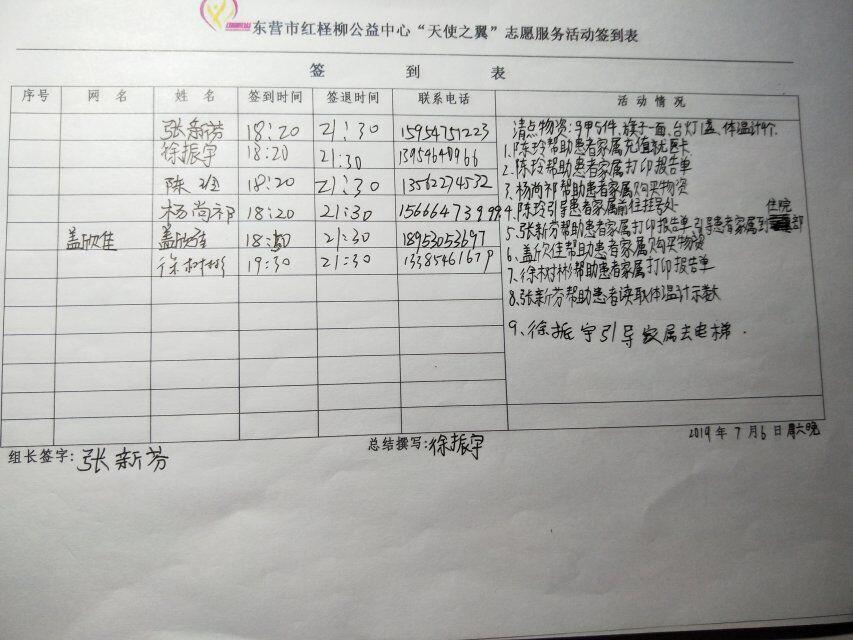 东营市红柽柳公益中心“天使之翼”志愿服务活动签到表
签 到 表
序号 网 名 姓 名 签到时间 签退时间 联系电话 活 动 情 况
张新芬 18:20 21:30 15954751223
徐振宇 18:20 21:30
陈玲 18:20 21:30 13562274532
杨尚祁 18:20 21:30
盖欣佳 盖欣佳 21:30 18953053697
徐树彬 19:30 21:30 13385461679
清点物资:马甲5件、旗子一面、台灯1盏、体温计4个.
1.陈玲帮助患者家属充值就医卡
2.陈玲帮助患者家属打印报告单
3.杨尚祁帮助患者家属购买物资
4.陈玲引导患者家属前往挂号处
5.张新芬帮助患者家属打印报告单引导患者家属到住院部
6.盖欣佳帮助患者家属购买物资
7.徐树彬帮助患者家属打印报告单
8.张新芬帮助患者读取体温计示数
9.徐振宇引导家属去电梯.
2019年7月6日周六晚
组长签字:张新芬 总结撰写:徐振宇